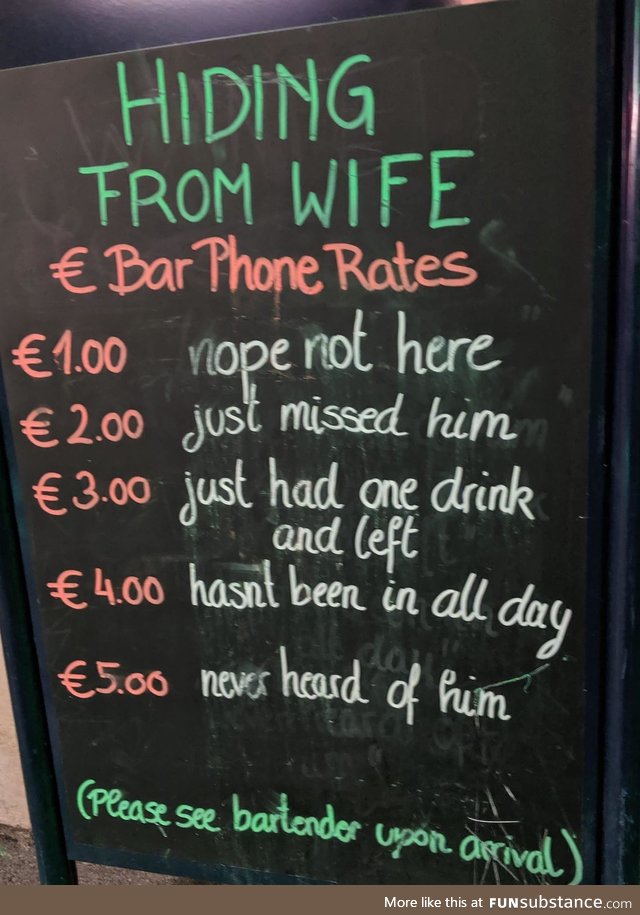 HIDING
FROM WIFE
€ Bar Phone Rates
€1.00 nope not here
€2.00 just missed him
€3.00 just had one drink
and left
€4.00 hasnt been in all day
€5.00 never heard of him
(please see bartender upon arrival)
More like this at FUNsubstance.com